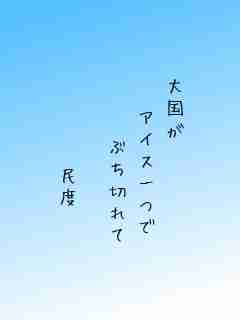 大国が
アイス一つで
ぶち切れて
民度